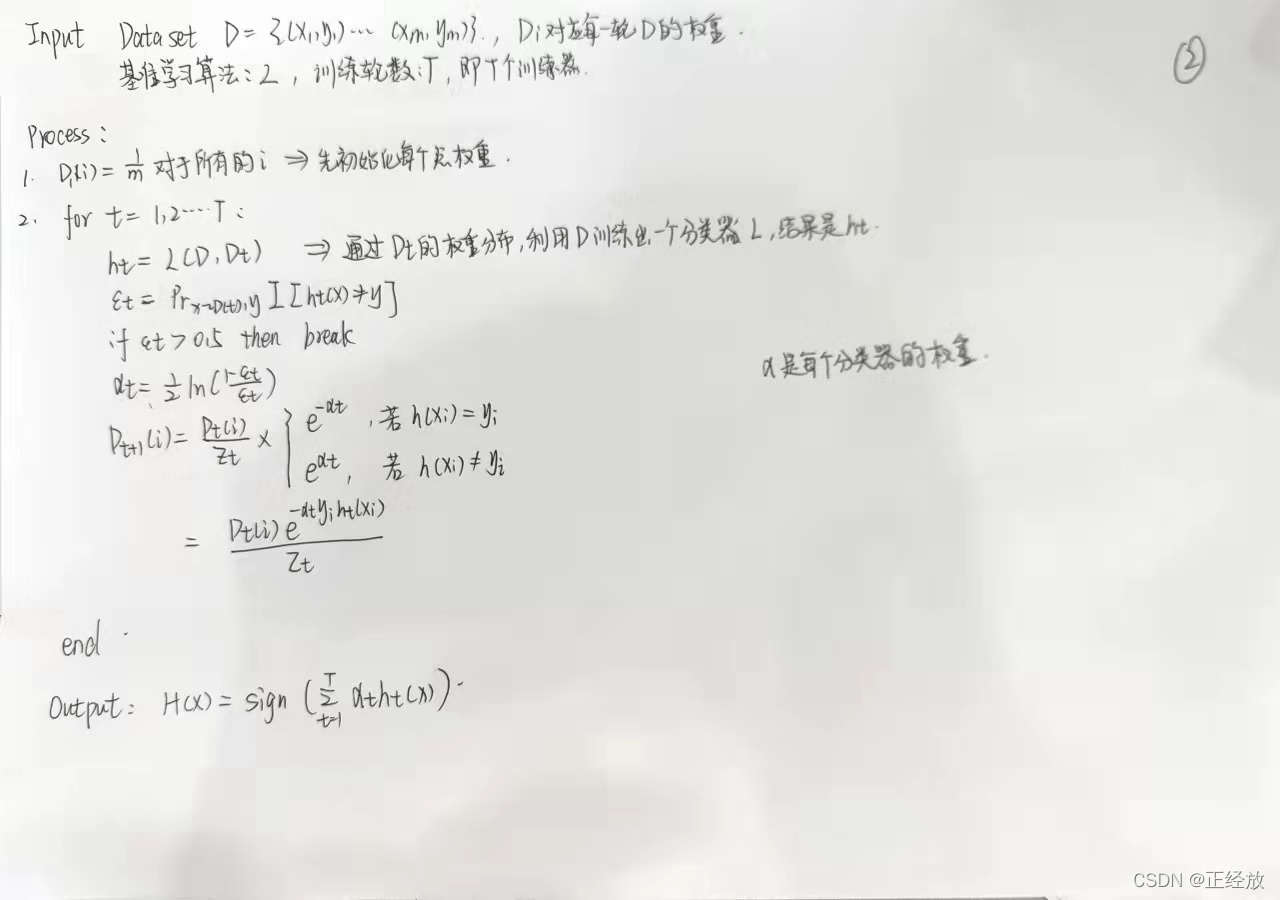 Input Data set D = {(x₁,y₁)⋯ (xₘ,yₘ)}., Di对应每一轮D的权重.
②
基准学习算法: L , 训练轮数:T, 即T个训练器.
Process:
1. D₁(i) = 1/m 对于所有的 i ⇒ 先初始化每个点权重.
2. for t = 1,2⋯T:
ht = L(D, Dt) ⇒ 通过Dt的权重分布,利用D训练出一个分类器L,结果是ht.
εt = Pr_{x~D(t),y} I[ht(x)≠y]
if εt > 0.5 then break
α是每个分类器的权重.
αt = ½ ln(1-εt/εt)
D_{t+1}(i) = Dt(i)/Zt × { e^{-αt} , 若 h(xi) = yi
e^{αt}, 若 h(xi) ≠ yi
= Dt(i) e^{-αt yi ht(xi)} / Zt
end .
Output: H(x) = sign (∑_{t=1}^{T} αt ht(x)).
CSDN @正经放